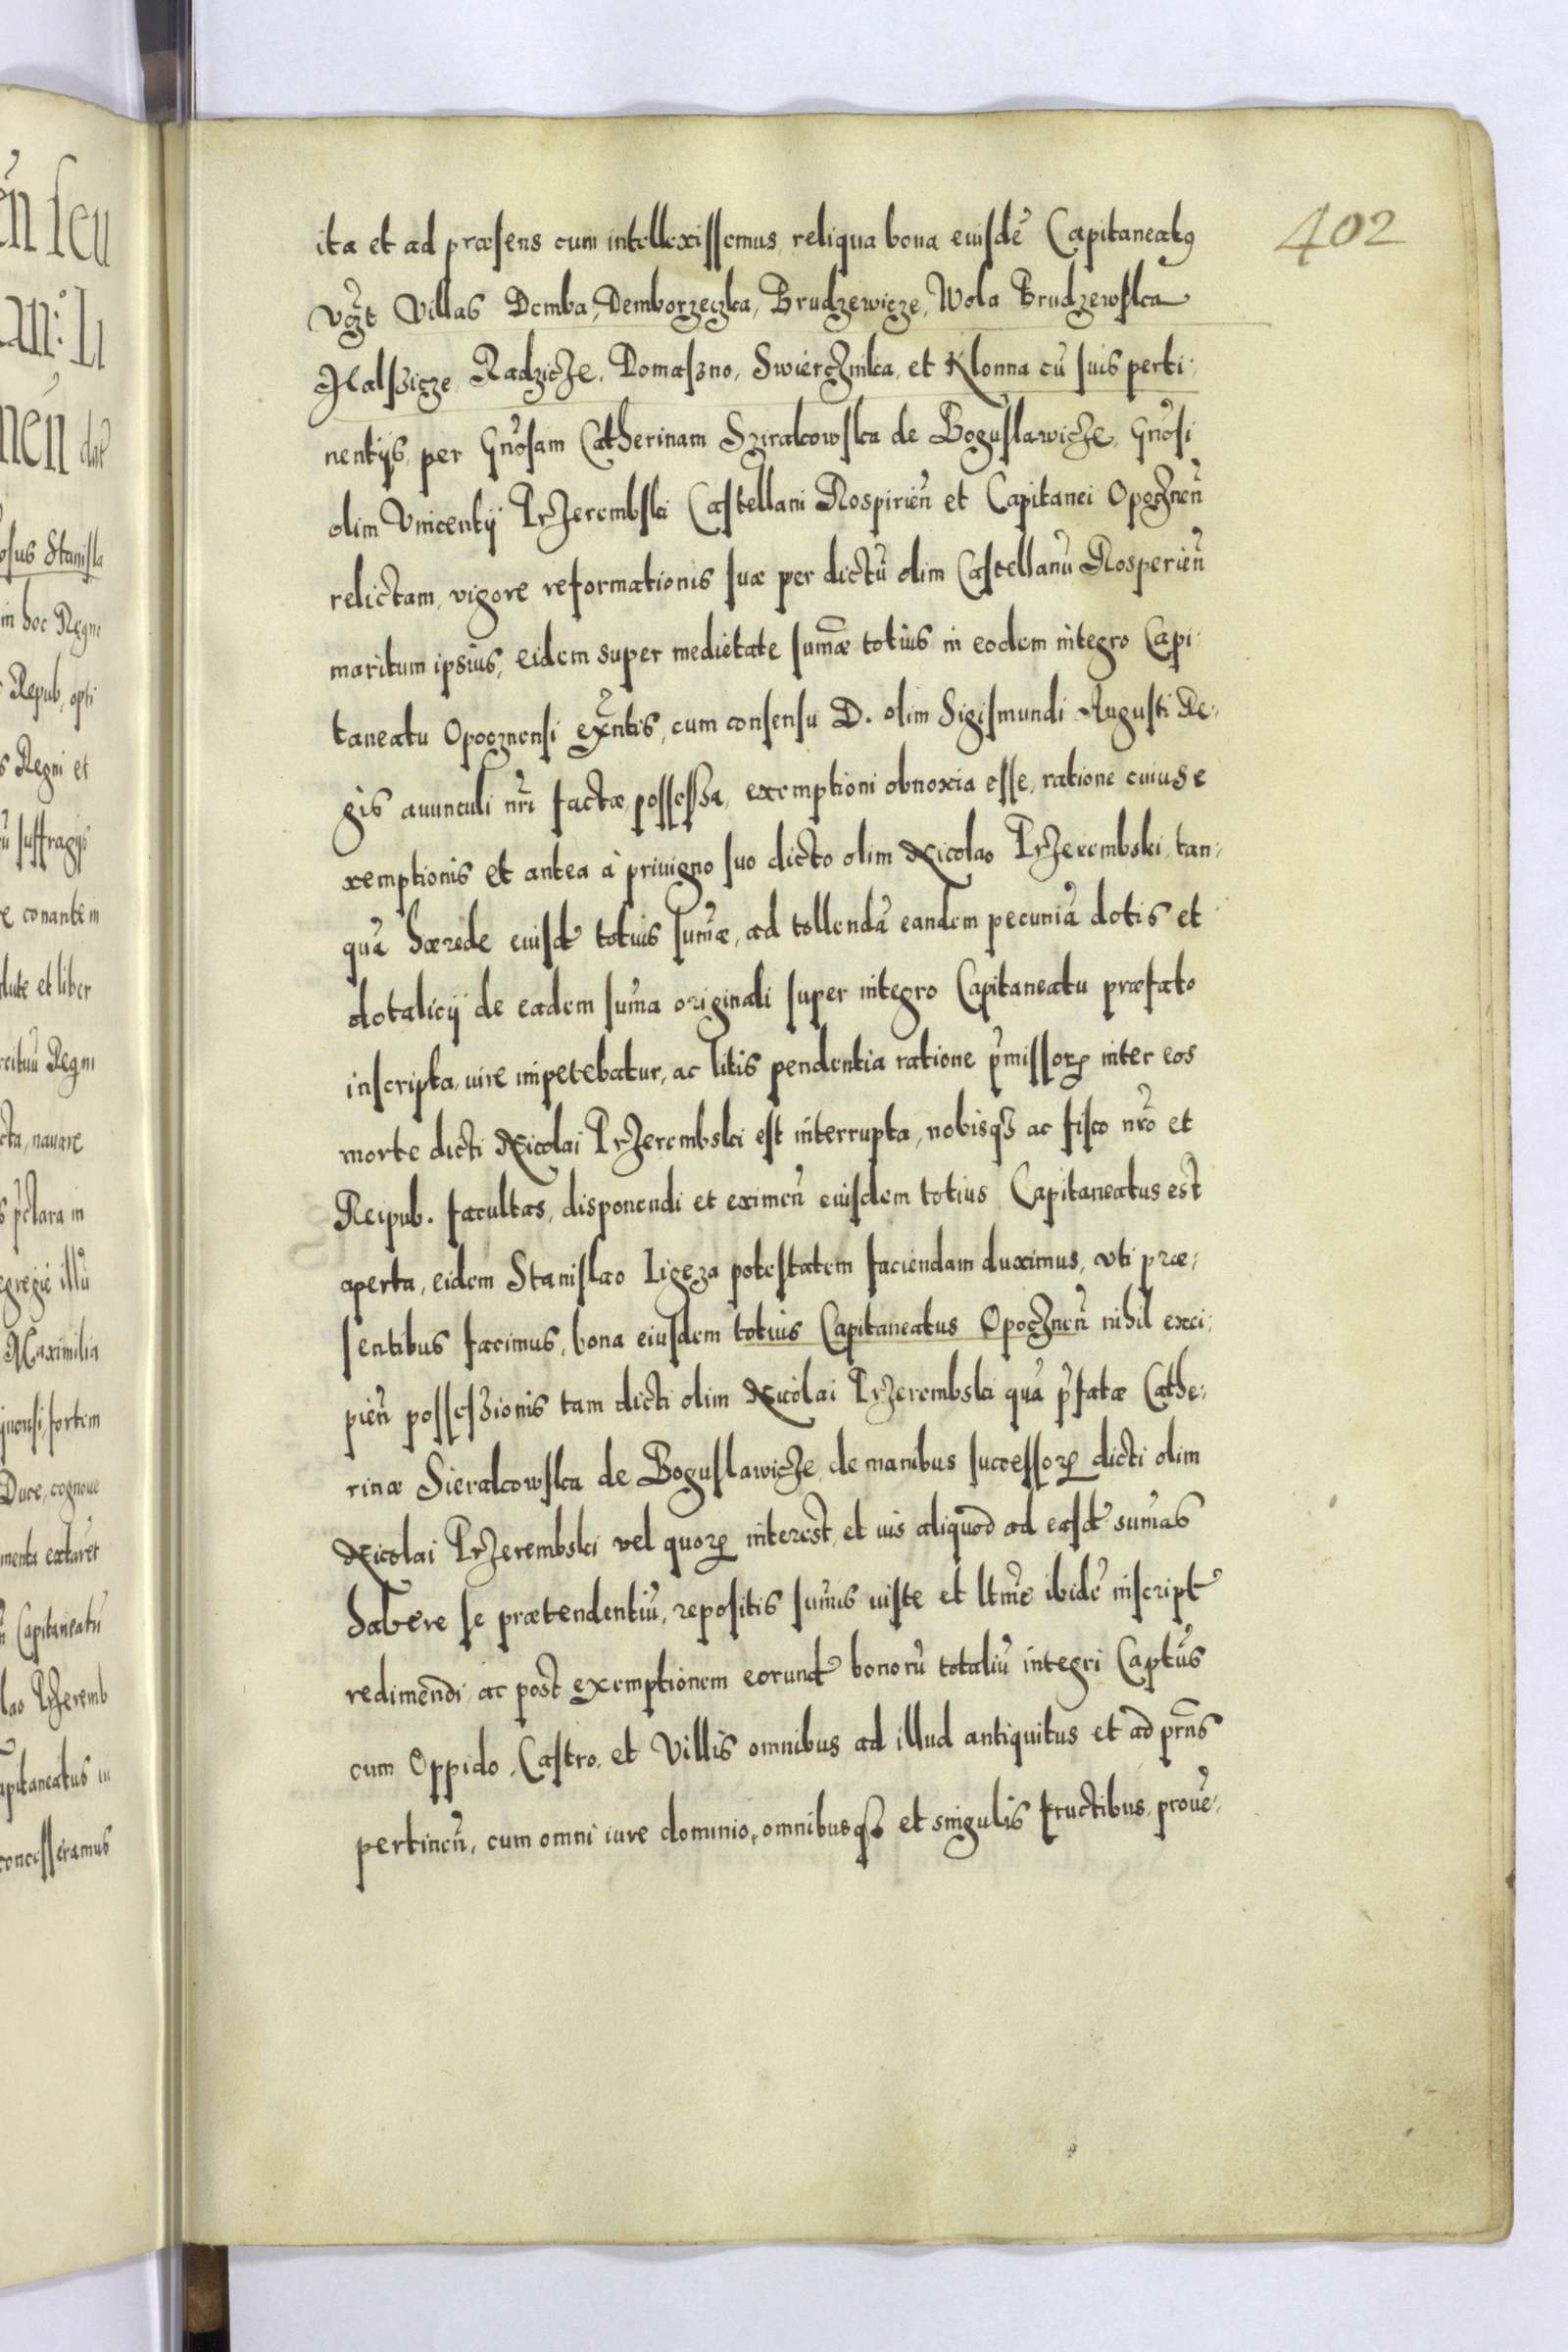 402
ita et ad præsens cum intellexissemus, reliqua bona eiusdē Capitaneatꝯ
vꝫt Villas Demba, Demborzeczka, Brudzewicze, Wola Brudzewska
Kalszicze, Radzicze, Domaszno, Swiercznika, et Klonna cū suis perti-
nentijs, per Gnōsam Catherinam Szirakowska de Boguslawicze, Gnōsi
olim Vnicentij Przerembski Castellani Rospirieñ et Capitanei Opoczneñ
relictam, vigore reformationis suæ per dictū olim Castellanū Rosperieñ
maritum ipsius, eidem super medietate sum̃æ totius in eodem integro Capi-
taneatu Opocznensi exñtis, cum consensu D. olim Sigismundi Augusti Re-
gis auunculi nr̃i factæ, possessa, exemptioni obnoxia esse, ratione cuius e
xemptionis et antea à priuigno suo dicto olim Nicolao Przerembski, tan-
quā hærede eiusd totius sum̃æ, ad tollendā eandem pecuniā dotis et
dotalicij de eadem sum̃a originali super integro Capitaneatu præfato
inscripta, iure impetebatur, ac litis pendentia ratione p̃missoꝝ inter eos
morte dicti Nicolai Przerembski est interrupta, nobisqꝫ ac fisco nr̃o et
Reipub. facultas, disponendi et eximeñ eiusdem totius Capitaneatus est
aperta, eidem Stanislao Ligeza potestatem faciendam duximus, vti præ-
sentibus facimus, bona eiusdem totius Capitaneatus Opocznen̄ nihil exci-
pieñ possessionis tam dicti olim Nicolai Przerembski quā p̃fatæ Cathe-
rinæ Sierakowska de Boguslawicze, de manibus successoꝝ dicti olim
Nicolai Przerembski vel quoꝝ interest, et ius aliquod ad easd sum̃as
habere se prætendentiū, repositis sum̃is iuste et ltm̃e ibidē inscript
redimendi, ac post exemptionem eorund bonorū totaliū integri Captūs
cum Oppido, Castro, et Villis omnibus ad illud antiquitus et ad prñs
pertineñ, cum omni iure dominio, omnibusqꝫ et singulis fructibus, proue-